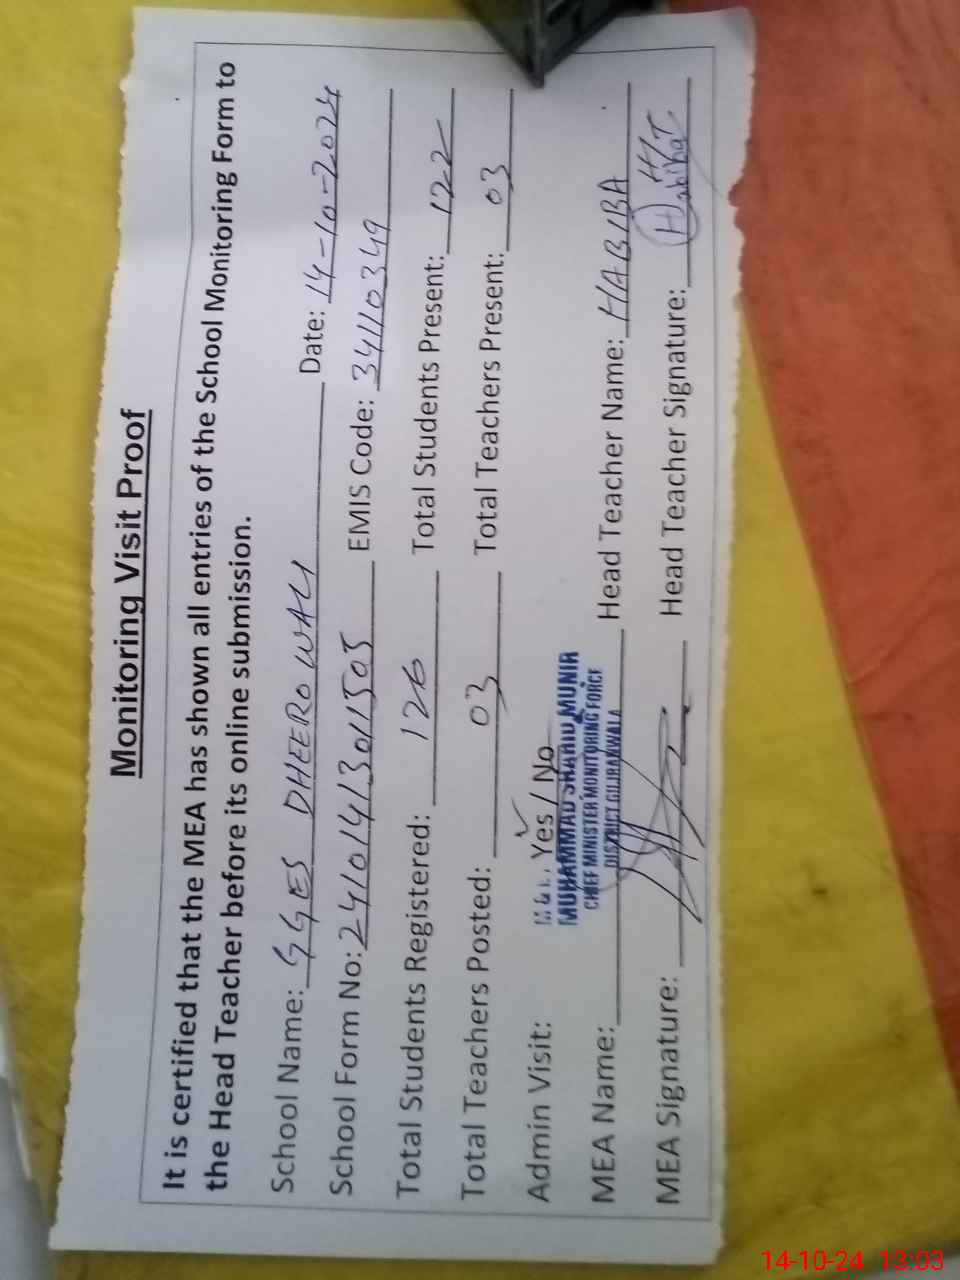 Monitoring Visit Proof
It is certified that the MEA has shown all entries of the School Monitoring Form to
the Head Teacher before its online submission.
School Name: GGES DHEEROWALI Date: 14-10-2024
School Form No: 24101413011505 EMIS Code: 34110349
Total Students Registered: 126 Total Students Present: 122
Total Teachers Posted: 03 Total Teachers Present: 03
Admin Visit: Yes / No
MUHAMMAD SHAHID MUNIR
CHIEF MINISTER MONITORING FORCE
DISTRICT GUJRANWALA
MEA Name: Head Teacher Name: HABIBA
MEA Signature: Head Teacher Signature: Habiba HT
14-10-24 13:03